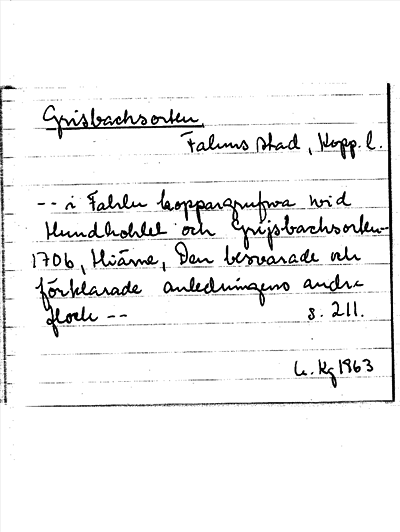 Grisbachsorten
Faluns stad, Kopp. l.
-- i Fahlu koppargrufwa wid
Hundhohlet och Grijsbachsorten
1706, Hiärne, Den beswarade och
förklarade anledningens andre
flock -- s. 211.
Kg 1963